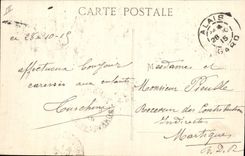 CARTE POSTALE
ALAIS
26
15
GARD
ce 26-10-15
affectueux bonjour
caresses aux enfants
Madame et
Monsieur
Receveur des Contributions
Indirectes
Martigues
B. D. R.